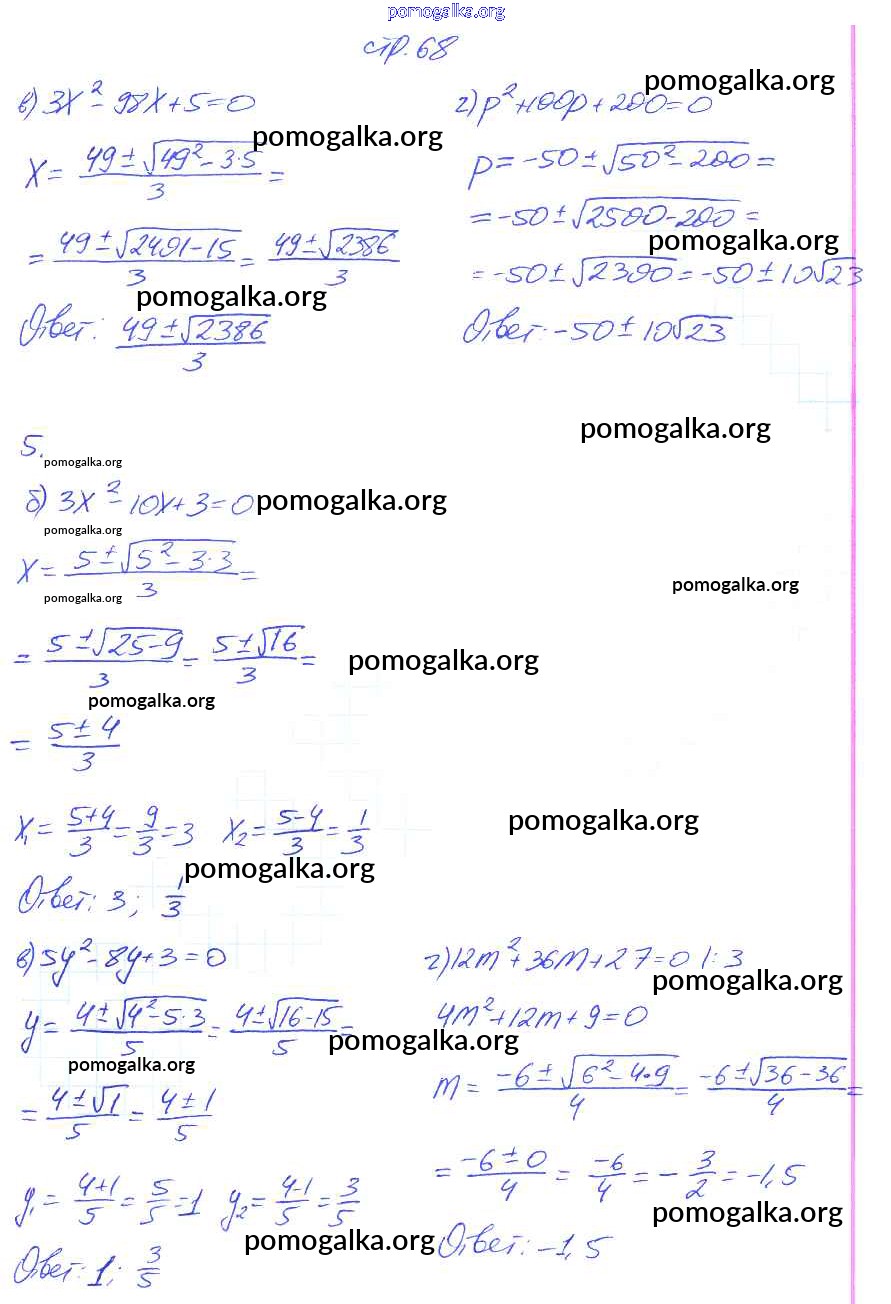 pomogalka.org
стр. 68
в) 3x² - 98x + 5 = 0
pomogalka.org
x = (49 ± √(49² - 3·5))/3 =
= (49 ± √(2401 - 15))/3 = (49 ± √2386)/3
pomogalka.org
Ответ: (49 ± √2386)/3
pomogalka.org
г) p² + 100p + 200 = 0
p = -50 ± √(50² - 200) =
= -50 ± √(2500 - 200) =
pomogalka.org
= -50 ± √2300 = -50 ± 10√23
Ответ: -50 ± 10√23
pomogalka.org
5.
pomogalka.org
б) 3x² - 10x + 3 = 0 pomogalka.org
pomogalka.org
x = (5 ± √(5² - 3·3))/3 =
pomogalka.org
pomogalka.org
= (5 ± √(25 - 9))/3 = (5 ± √16)/3 =
pomogalka.org
pomogalka.org
= (5 ± 4)/3
x₁ = (5+4)/3 = 9/3 = 3 x₂ = (5-4)/3 = 1/3
pomogalka.org
pomogalka.org
Ответ: 3; 1/3
в) 5y² - 8y + 3 = 0
y = (4 ± √(4² - 5·3))/5 = (4 ± √(16 - 15))/5 =
pomogalka.org
pomogalka.org
= (4 ± √1)/5 = (4 ± 1)/5
y₁ = (4+1)/5 = 5/5 = 1 y₂ = (4-1)/5 = 3/5
pomogalka.org
Ответ: 1; 3/5
г) 12m² + 36m + 27 = 0 |: 3
pomogalka.org
4m² + 12m + 9 = 0
m = (-6 ± √(6² - 4·9))/4 = (-6 ± √(36 - 36))/4 =
= (-6 ± 0)/4 = -6/4 = -3/2 = -1,5
pomogalka.org
Ответ: -1,5